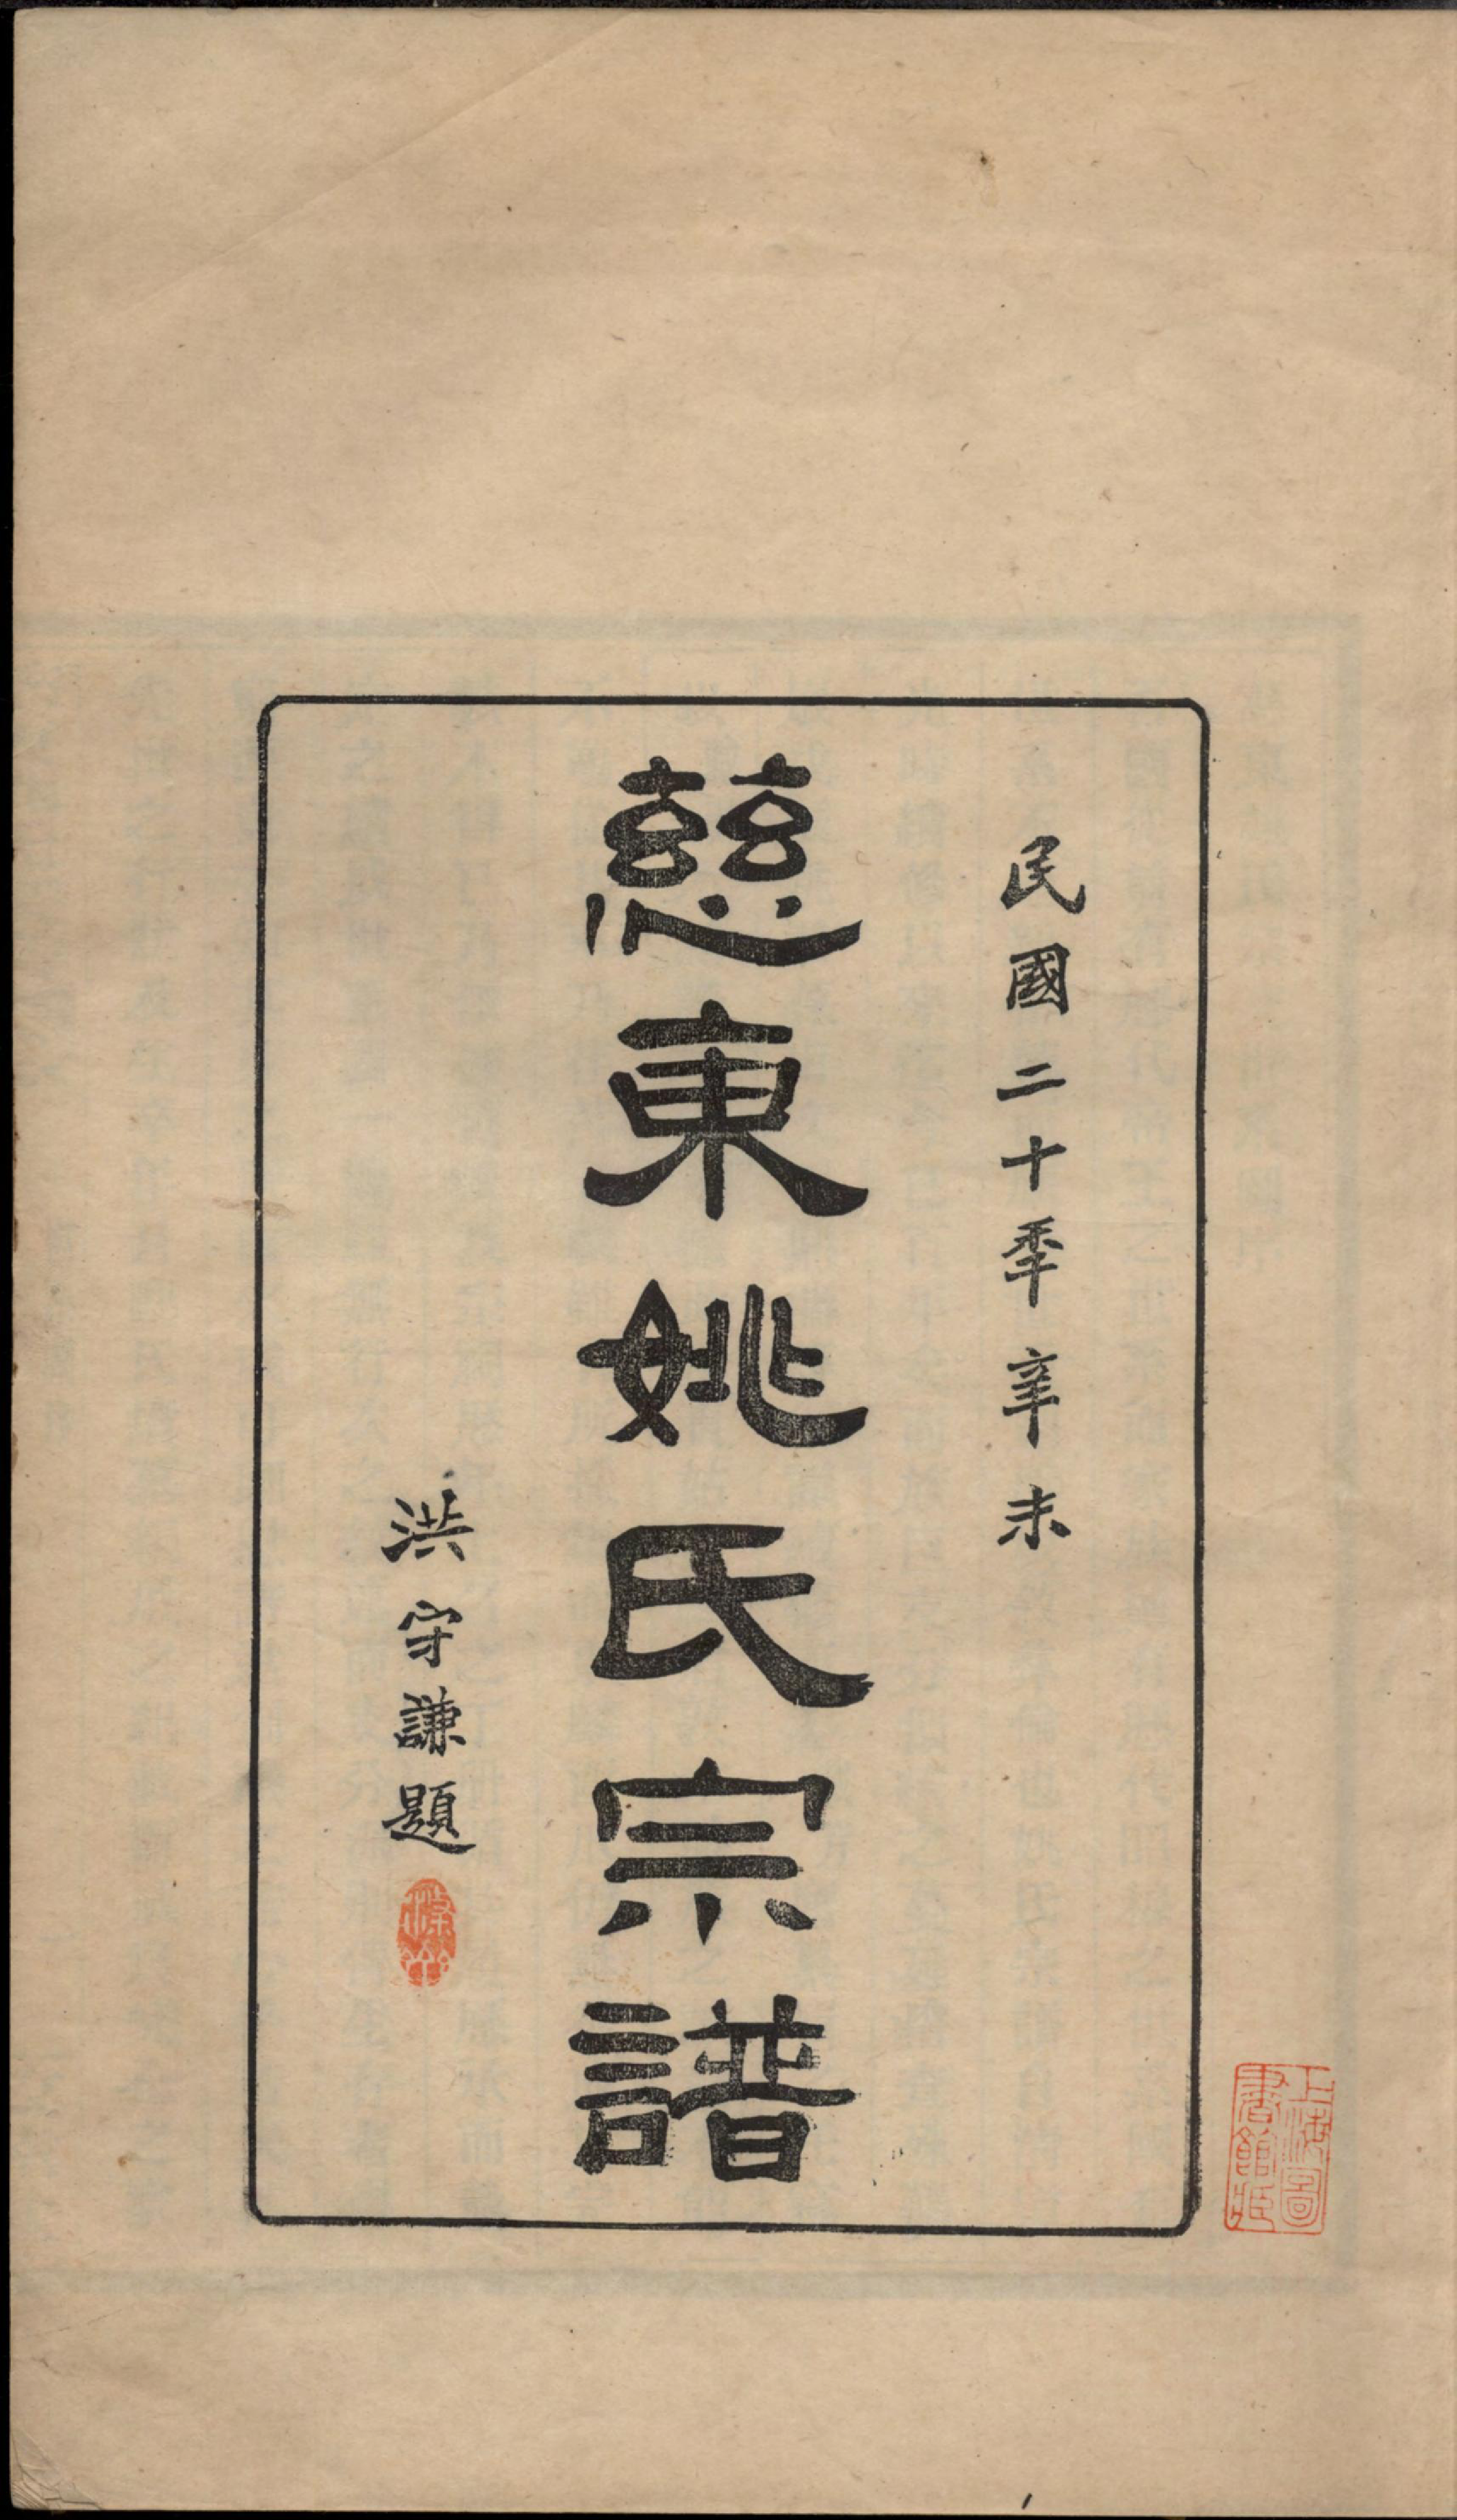 民國二十季辛未
慈東姚氏宗譜
洪守謙題
上海圖
書館藏